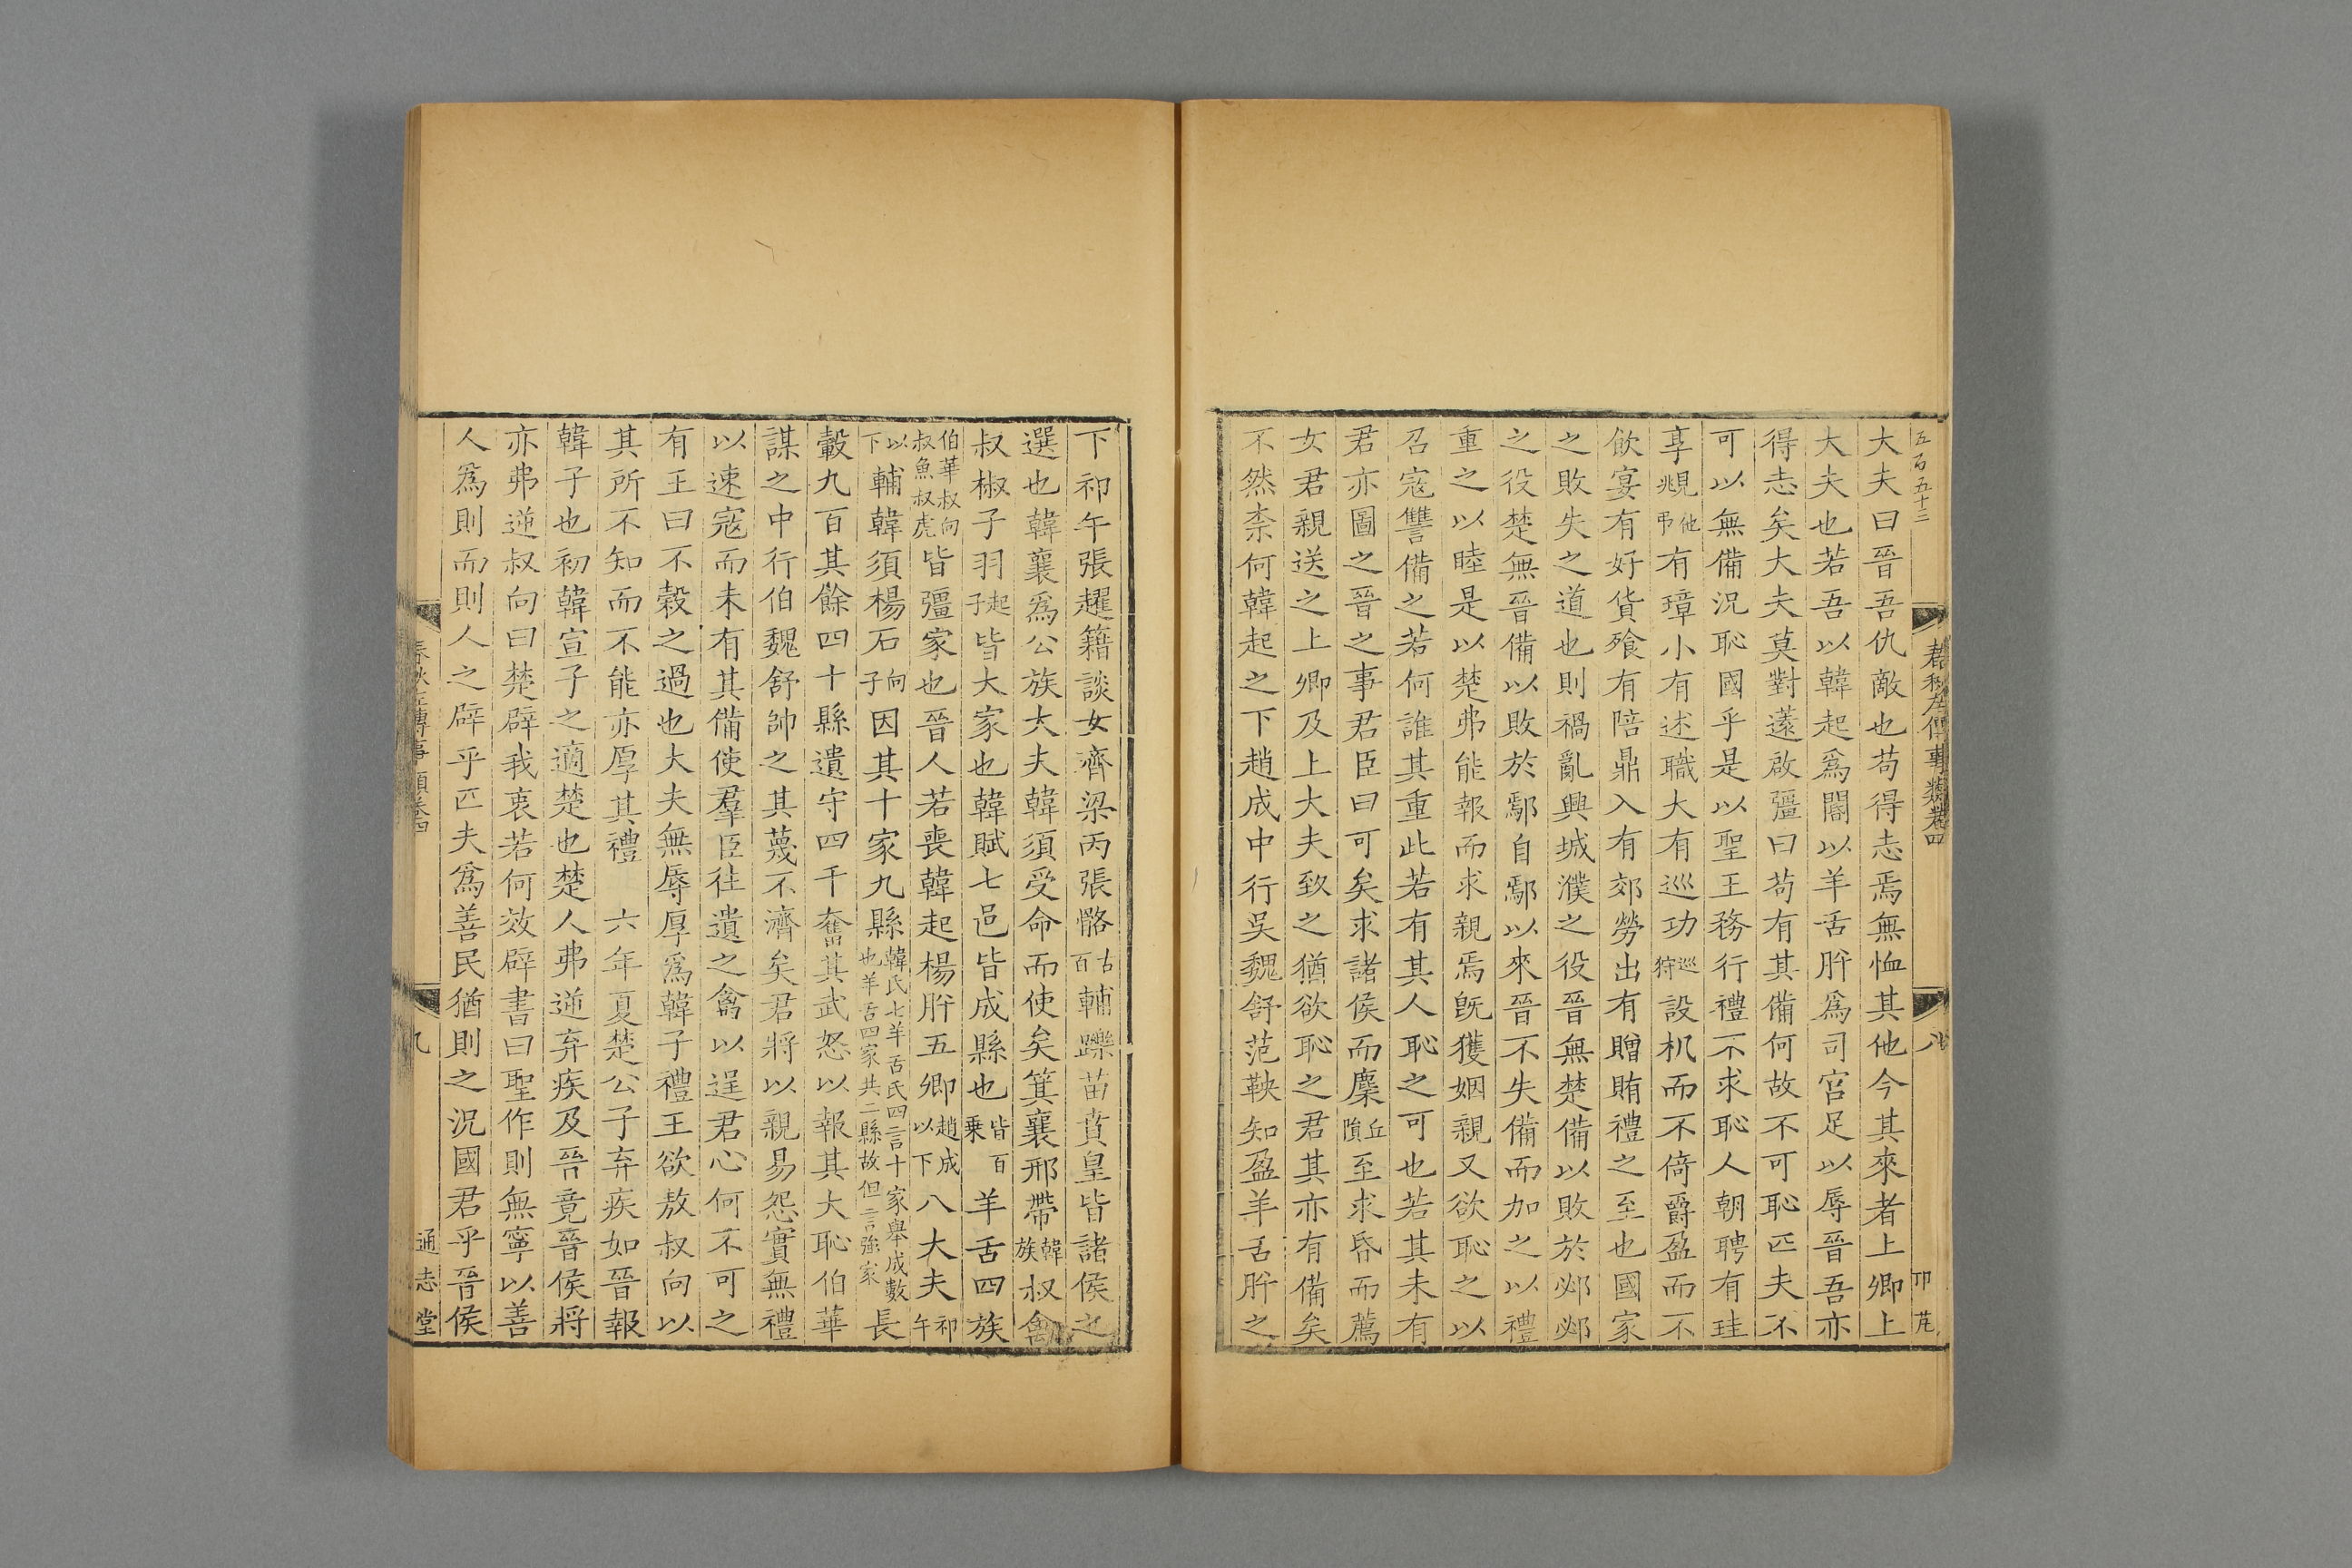 五百五十二
春秋左傳事類卷四
八
大夫曰晉吾仇敵也苟得志焉無恤其他今其來者上卿上
大夫也若吾以韓起爲閽以羊舌肸爲司宮足以辱晉吾亦
得志矣大夫莫對薳啟彊曰苟有其備何故不可恥匹夫不
可以無備況恥國乎是以聖王務行禮不求恥人朝聘有珪
享覜他弔有璋小有述職大有巡功巡狩設机而不倚爵盈而不
飲宴有好貨飱有陪鼎入有郊勞出有贈賄禮之至也國家
之敗失之道也則禍亂興城濮之役晉無楚備以敗於邲邲
之役楚無晉備以敗於鄢自鄢以來晉不失備而加之以禮
重之以睦是以楚弗能報而求親焉旣獲姻親又欲恥之以
召寇讐備之若何誰其重此若有其人恥之可也若其未有
君亦圖之晉之事君臣曰可矣求諸侯而麇丘隕至求昏而薦
女君親送之上卿及上大夫致之猶欲恥之君其亦有備矣
不然柰何韓起之下趙成中行吳魏舒范鞅知盈羊舌肸之
下祁午張趯籍談女濟梁丙張骼古百輔躒苗賁皇皆諸侯之
選也韓襄爲公族大夫韓須受命而使矣箕襄邢帶韓族叔禽
叔椒子羽起子皆大家也韓賦七邑皆成縣也皆百乗羊舌四族
伯華叔向叔魚叔虎皆彊家也晉人若喪韓起楊肸五卿趙成以下八大夫祁午
以下輔韓須楊石向子因其十家九縣韓氏七羊舌氏四言十家舉成數也羊舌四家共二縣故但言強家長
轂九百其餘四十縣遺守四千奮其武怒以報其大恥伯華
謀之中行伯魏舒帥之其蔑不濟矣君將以親易怨實無禮
以速寇而未有其備使羣臣往遺之禽以逞君心何不可之
有王曰不穀之過也大夫無辱厚爲韓子禮王欲敖叔向以
其所不知而不能亦厚其禮　六年夏楚公子弃疾如晉報
韓子也初韓宣子之適楚也楚人弗逆弃疾及晉竟晉侯將
亦弗逆叔向曰楚辟我衷若何效辟書曰聖作則無寧以善
人爲則而則人之辟乎匹夫爲善民猶則之況國君乎晉侯
春秋左傳事類卷四
九
通志堂